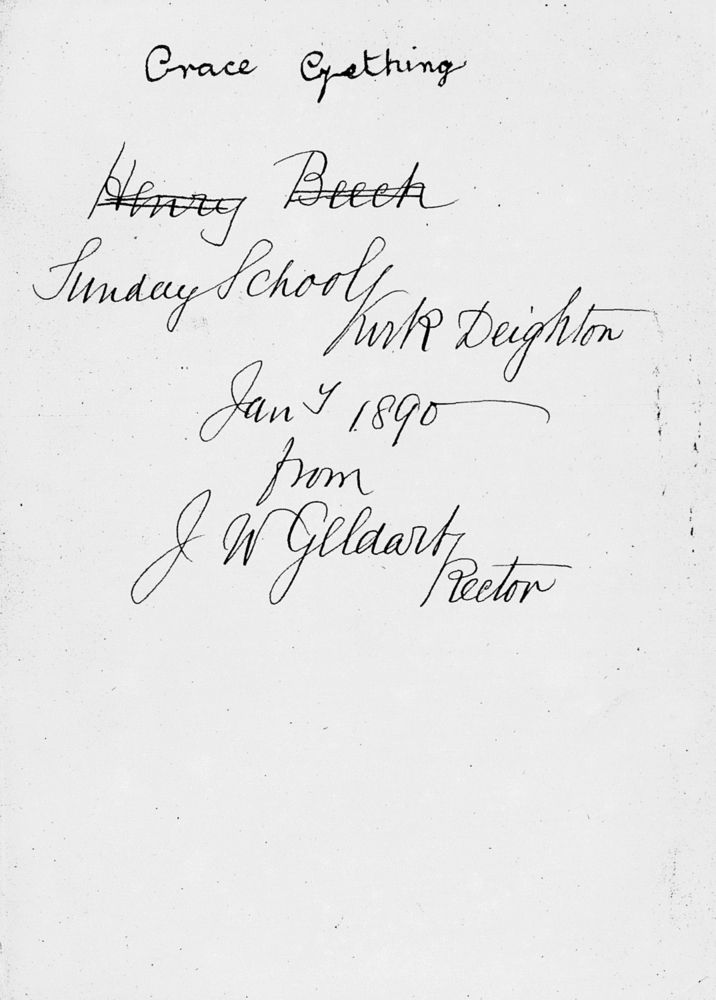 Grace Gething
Henry Beech
Sunday School
Kirk Deighton
Jany 1890
from
J W Geldart
Rector